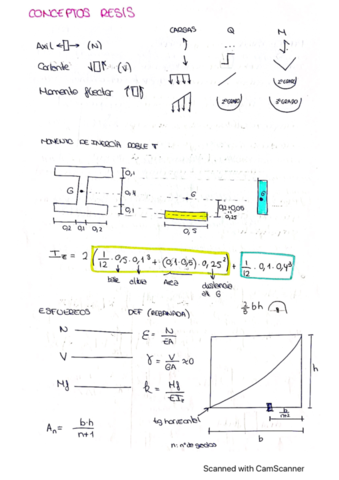 CONCEPTOS RESIS
CARGAS Q M
Axil (N)
Cortante (V)
Momento flector
2º GRADO
2º GRADO 3º GRADO
MOMENTO DE INERCIA DOBLE T
0,1
0,4
0,1
G
0,2 0,1 0,2
G
0,2+0,05
0,25
0,5
G
I_z = 2 (1/12 · 0,5 · 0,1³ + (0,1·0,5) · 0,25²) + 1/12 · 0,1 · 0,4³
base altura Area distancia a G
2/3 bh
ESFUERZOS DEF (REBANADA)
N ε = N/EA
V γ = V/GA ≈ 0
Mf k = Mf/EIz
tg horizontal
A_n = b·h/n+1
n: nº de grados
b/n+2
h
b
Scanned with CamScanner